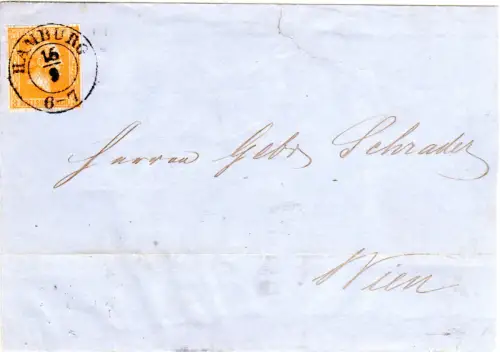 HAMBURG
15/9
6-7
Herren Gebr Schrader
Wien